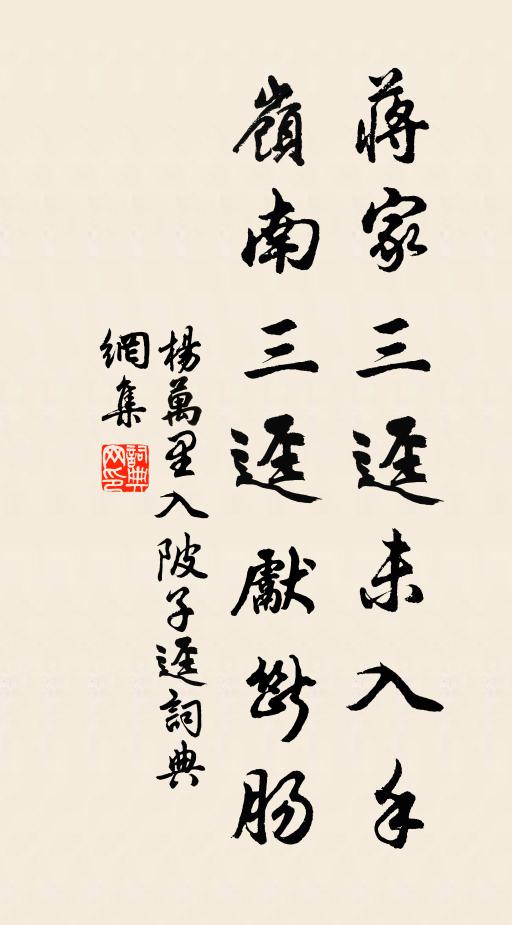 蔣家三逕未入手
嶺南三逕獻斷腸
楊萬里入陂子逕詞典
網集
詞典
网印